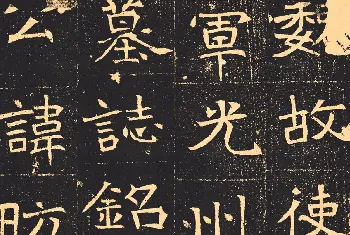 魏故使
軍光州
墓誌銘
公諱